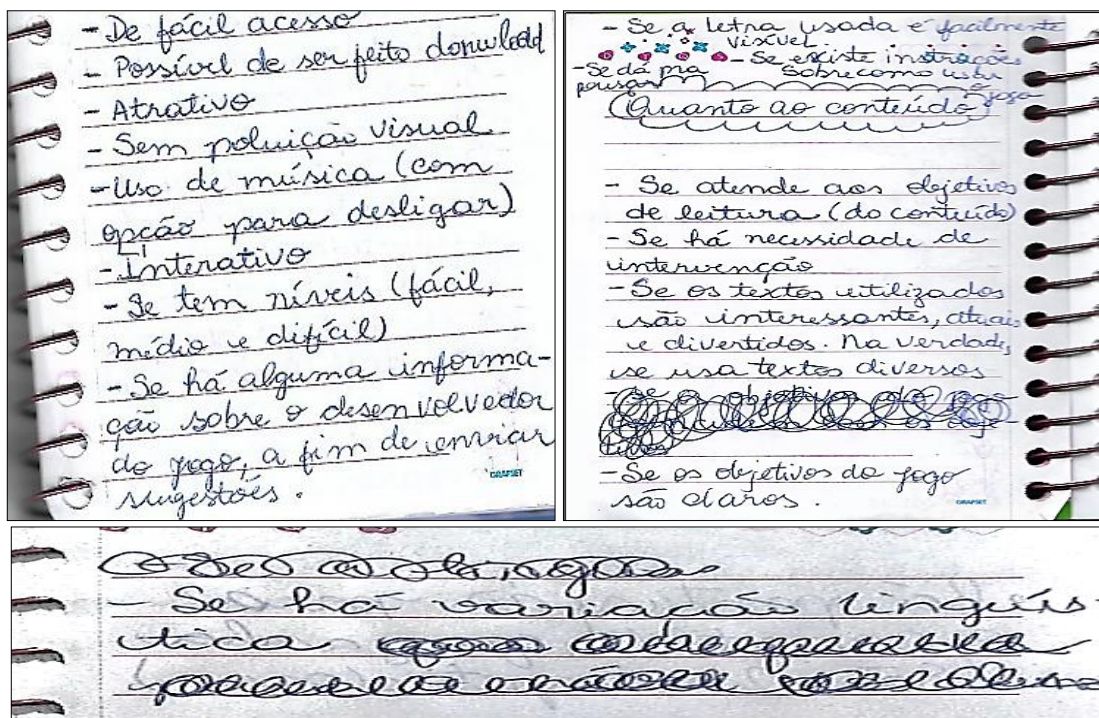 - De fácil acesso
- Possível de ser feito download
- Atrativo
- Sem poluição visual
- Uso de música (com
opção para desligar)
- Interativo
- Se tem níveis (fácil,
médio e difícil)
- Se há alguma informa-
ção sobre o desenvolvedor
do jogo, a fim de enviar
sugestões.
GRAFSET
- Se a letra usada é facilmente
visível
- Se existe instruções
sobre como usar
o jogo
- Se dá pra
pausar
Quanto ao conteúdo
- Se atende aos objetivos
de leitura (do conteúdo)
- Se há necessidade de
intervenção
- Se os textos utilizados
são interessantes, atuais
e divertidos. Na verdade,
se usa textos diversos
- Se os objetivos do jogo
são claros.
GRAFSET
- Se há variação linguís-
tica